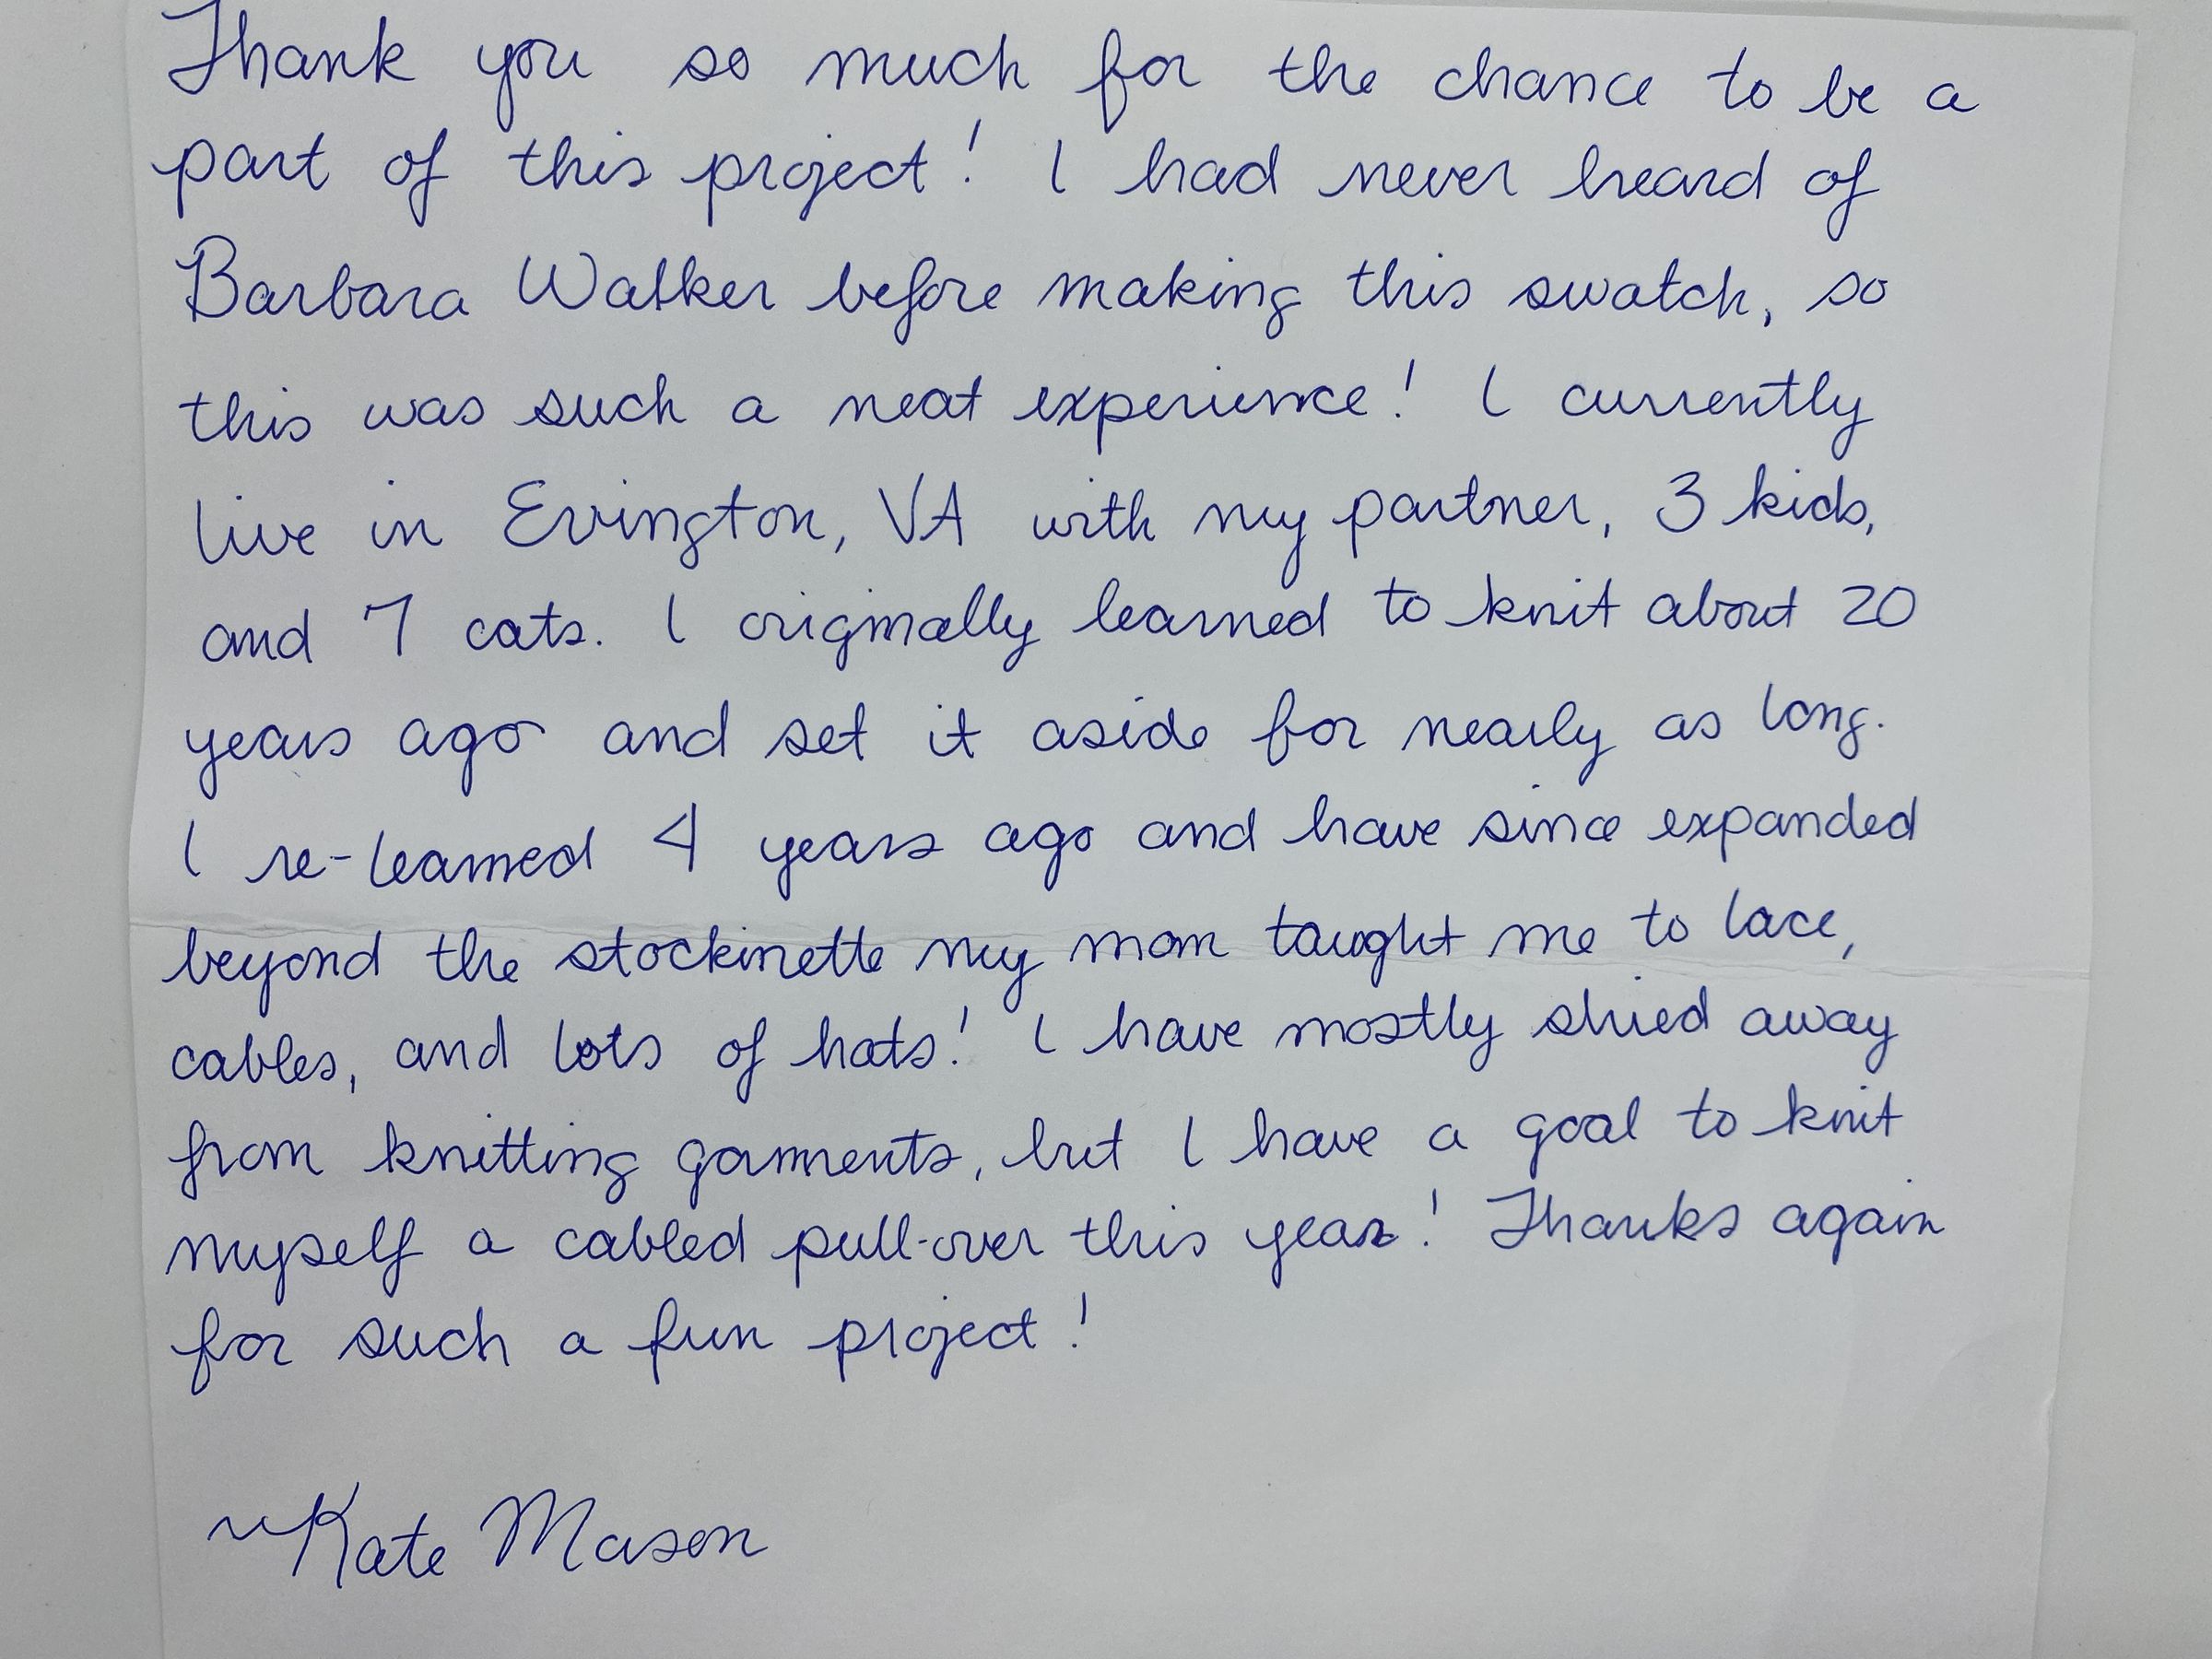 Thank you so much for the chance to be a
part of this project! I had never heard of
Barbara Walker before making this swatch, so
this was such a neat experience! I currently
live in Evington, VA with my partner, 3 kids,
and 7 cats. I originally learned to knit about 20
years ago and set it aside for nearly as long.
I re-learned 4 years ago and have since expanded
beyond the stockinette my mom taught me to lace,
cables, and lots of hats! I have mostly shied away
from knitting garments, but I have a goal to knit
myself a cabled pull-over this year! Thanks again
for such a fun project!
~Kate Mason